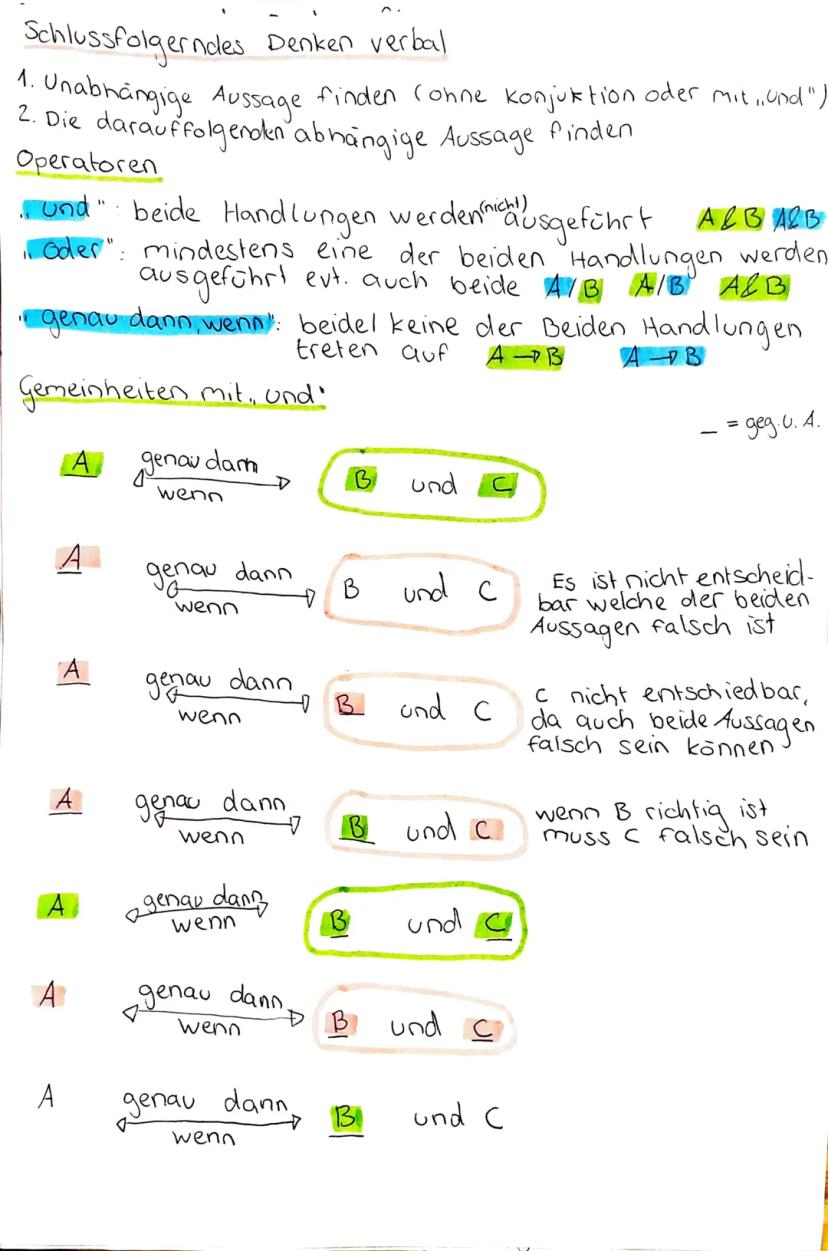 Schlussfolgerndes Denken verbal
1. Unabhängige Aussage finden (ohne Konjuktion oder mit „und")
2. Die darauffolgenden abhängige Aussage finden
Operatoren
„und": beide Handlungen werden (nicht) ausgeführt A & B A & B
„oder": mindestens eine der beiden Handlungen werden
ausgeführt evt. auch beide A/B A/B A & B
"genau dann, wenn": beide/ keine der Beiden Handlungen
treten auf A → B A → B
Gemeinheiten mit „und"
_ = geg. U. A.
A genau dann wenn B und C
A genau dann wenn B und C Es ist nicht entscheid-
bar welche der beiden
Aussagen falsch ist
A genau dann wenn B und C C nicht entschiedbar,
da auch beide Aussagen
falsch sein können
A genau dann wenn B und C wenn B richtig ist
muss C falsch sein
A genau dann wenn B und C
A genau dann wenn B und C
A genau dann wenn B und C